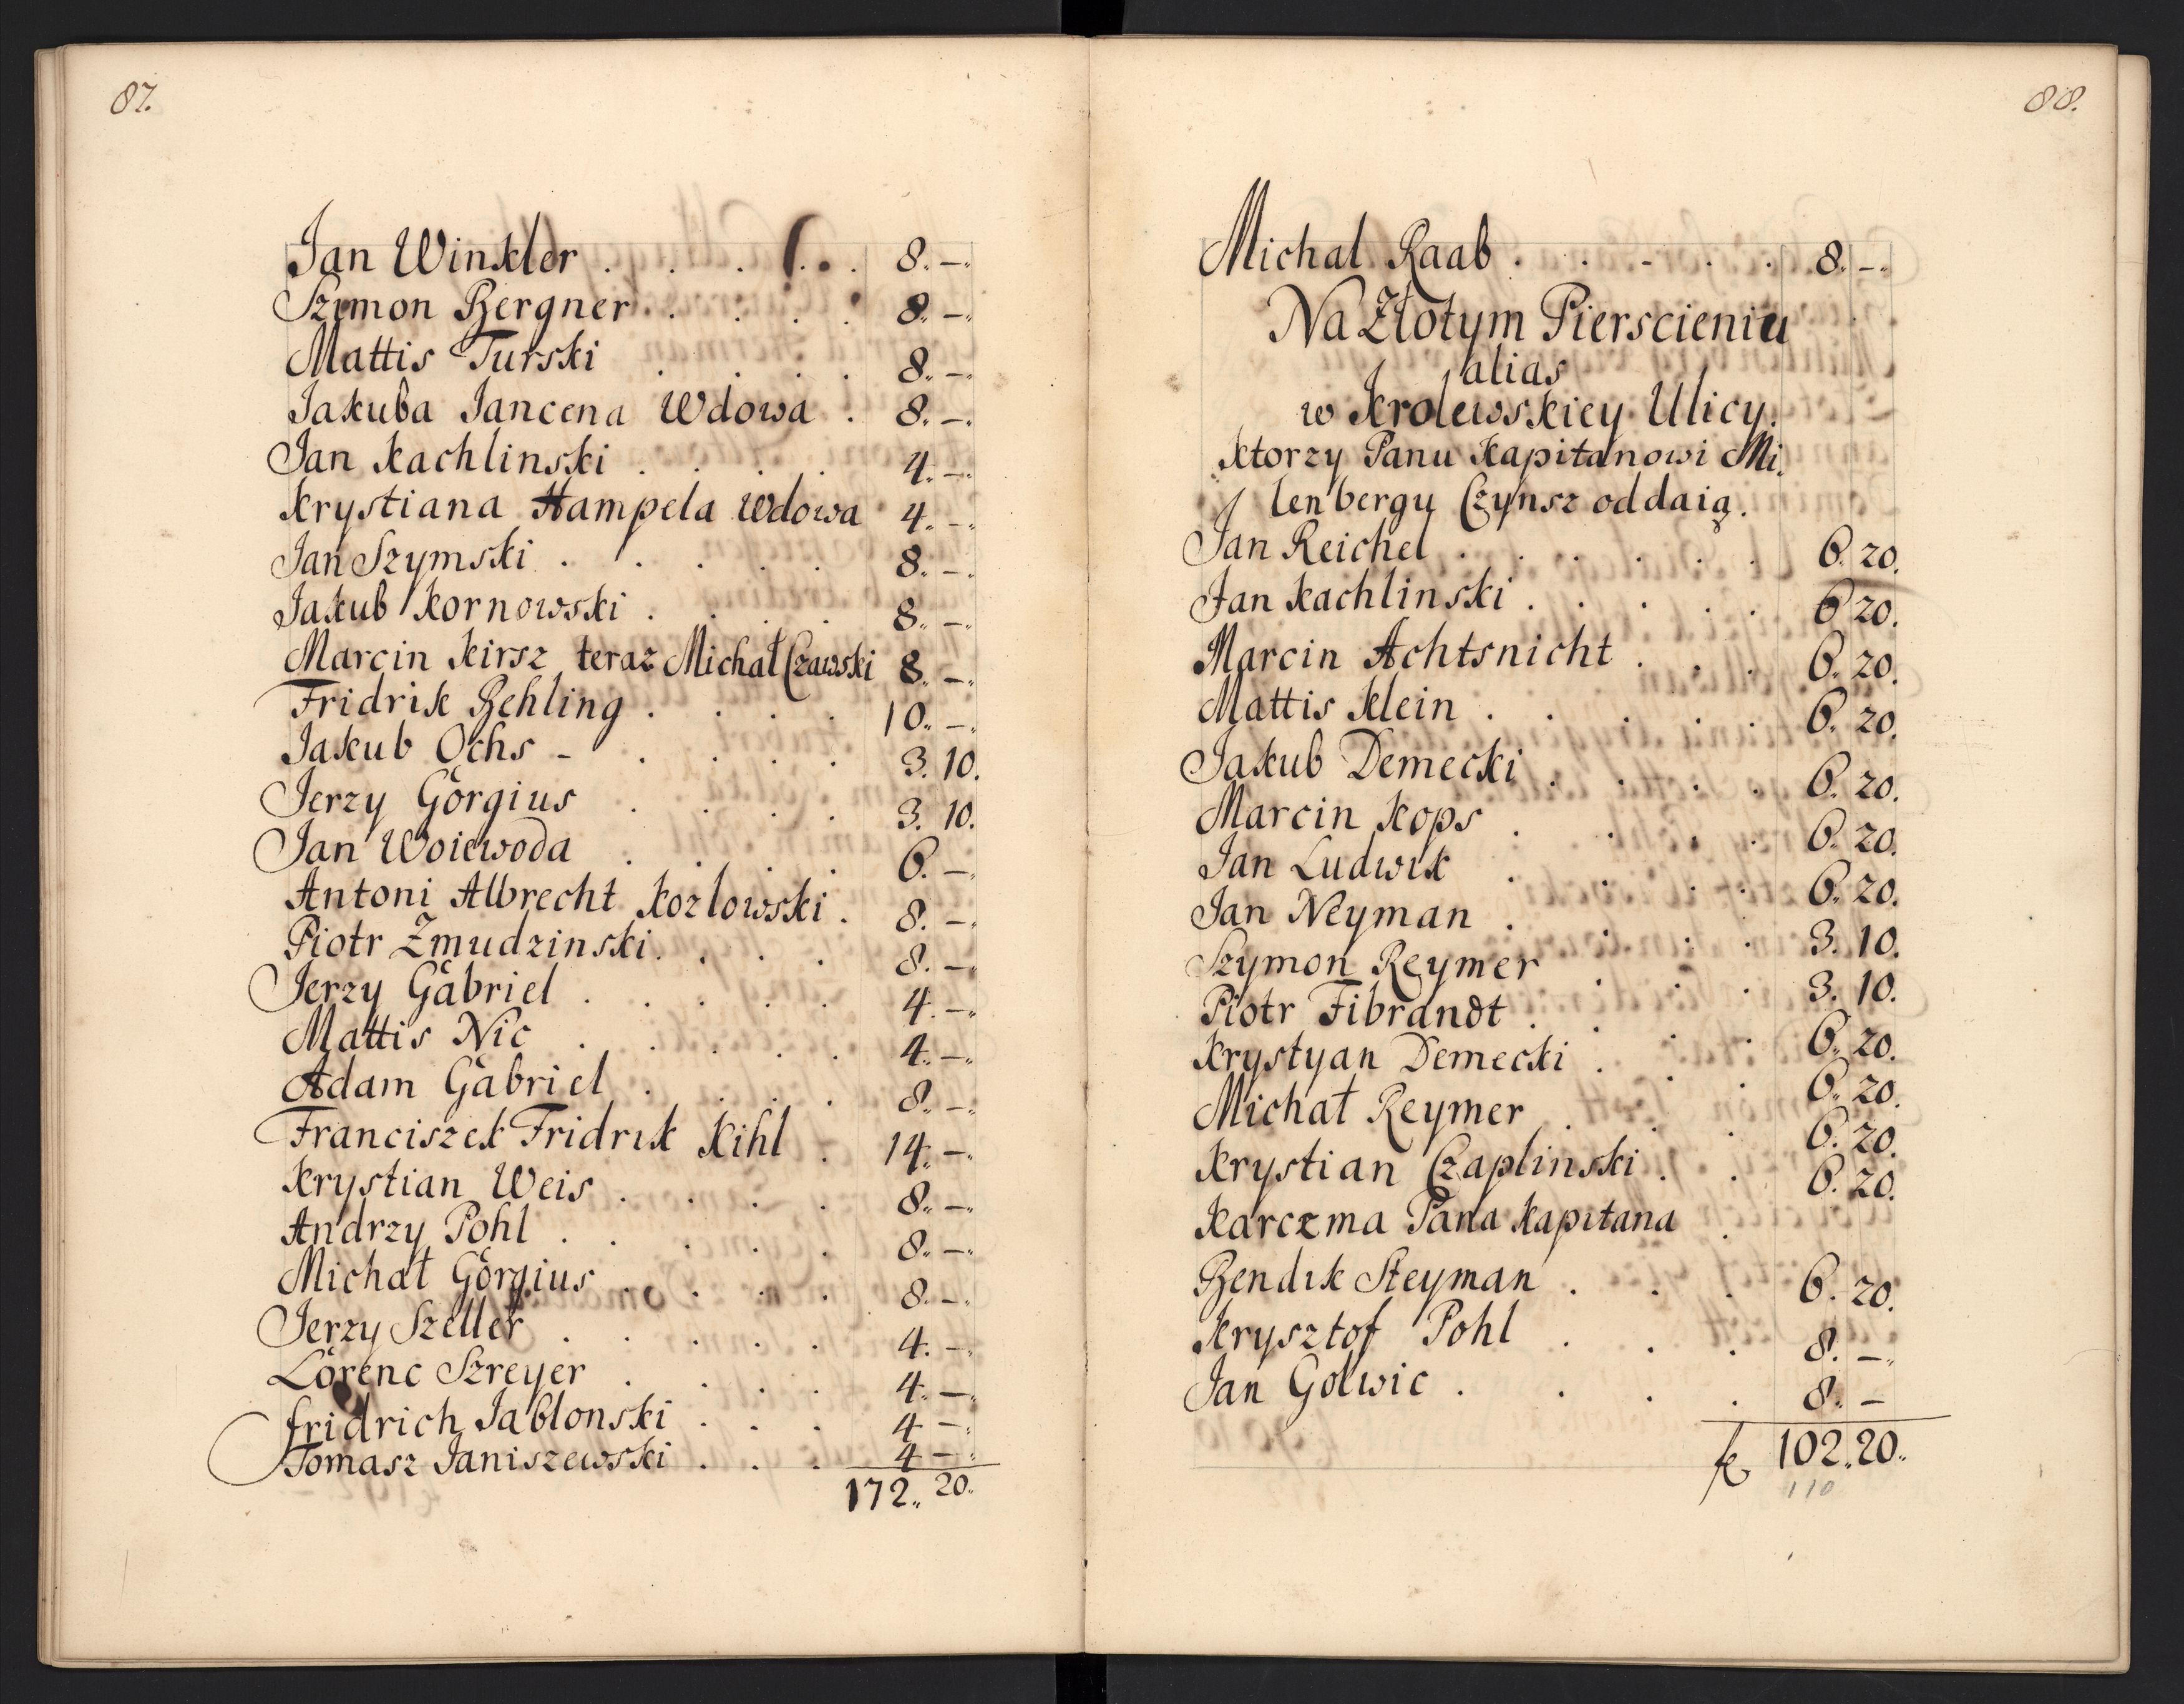 87.
Jan Winkler . . . . . 8. —.
Szymon Bergner . . . . 8. —.
Mattis Turski . . . . 8. —.
Jakuba Jancena Wdowa . 8. —.
Jan Kachlinski . . . . 4. —.
Krystiana Hampela Wdowa 4. —.
Jan Szymski . . . . . 8. —.
Jakub Kornowski . . . . 8. —.
Marcin Kirsz teraz Michał Czawski 8. —.
Fridrik Behling . . . . 10. —.
Jakub Ochs - . . . . 3. 10.
Jerzy Görgius . . . . 3. 10.
Jan Woiewoda . . . . 6. —.
Antoni Albrecht Kozlowski . 8. —.
Piotr Żmudzinski . . . . 8. —.
Jerzy Gabriel . . . . . 4. —.
Mattis Nic . . . . . 4. —.
Adam Gabriel . . . . 8. —.
Franciszek Fridrik Kihl . 14. —.
Krystian Weis . . . . 8. —.
Andrzy Pohl . . . . . 8. —.
Michał Görgius . . . . 8. —.
Jerzy Szeller . . . . . 4. —.
Lorenc Szreyer . . . . 4. —.
fridrich Jablonski . . . 4 —.
Tomasz Janiszewski . . . 4 —.
172. 20.
88.
Michal Raab . . . . . 8. —.
Na Złotym Pierscieniu
alias
w Krolewskiey Ulicy.
Ktorzy Panu Kapitanowi Mi.
lenbergu Czynsz oddaią.
Jan Reichel . . . . . . 6. 20.
Jan Kachlinski . . . . . 6 20.
Marcin Achtsnicht . . . 6. 20.
Mattis Klein . . . . . 6. 20.
Jakub Demecki . . . . 6. 20.
Marcin Kops . . . . 6. 20.
Jan Ludwik . . . . 6. 20.
Jan Neyman . . . . 3. 10.
Szymon Reymer . . . 3. 10.
Piotr Fibrandt . . . . 6. 20.
Krystyan Demecki . . . 6. 20.
Michał Reymer . . . 6. 20.
Krystian Czaplinski . . 6. 20.
Karczma Pana Kapitana .
Bendik Steyman . . . 6. 20.
Krysztof Pohl . . . 8. —.
Jan Golwic . . . . 8. —
102. 20.
110